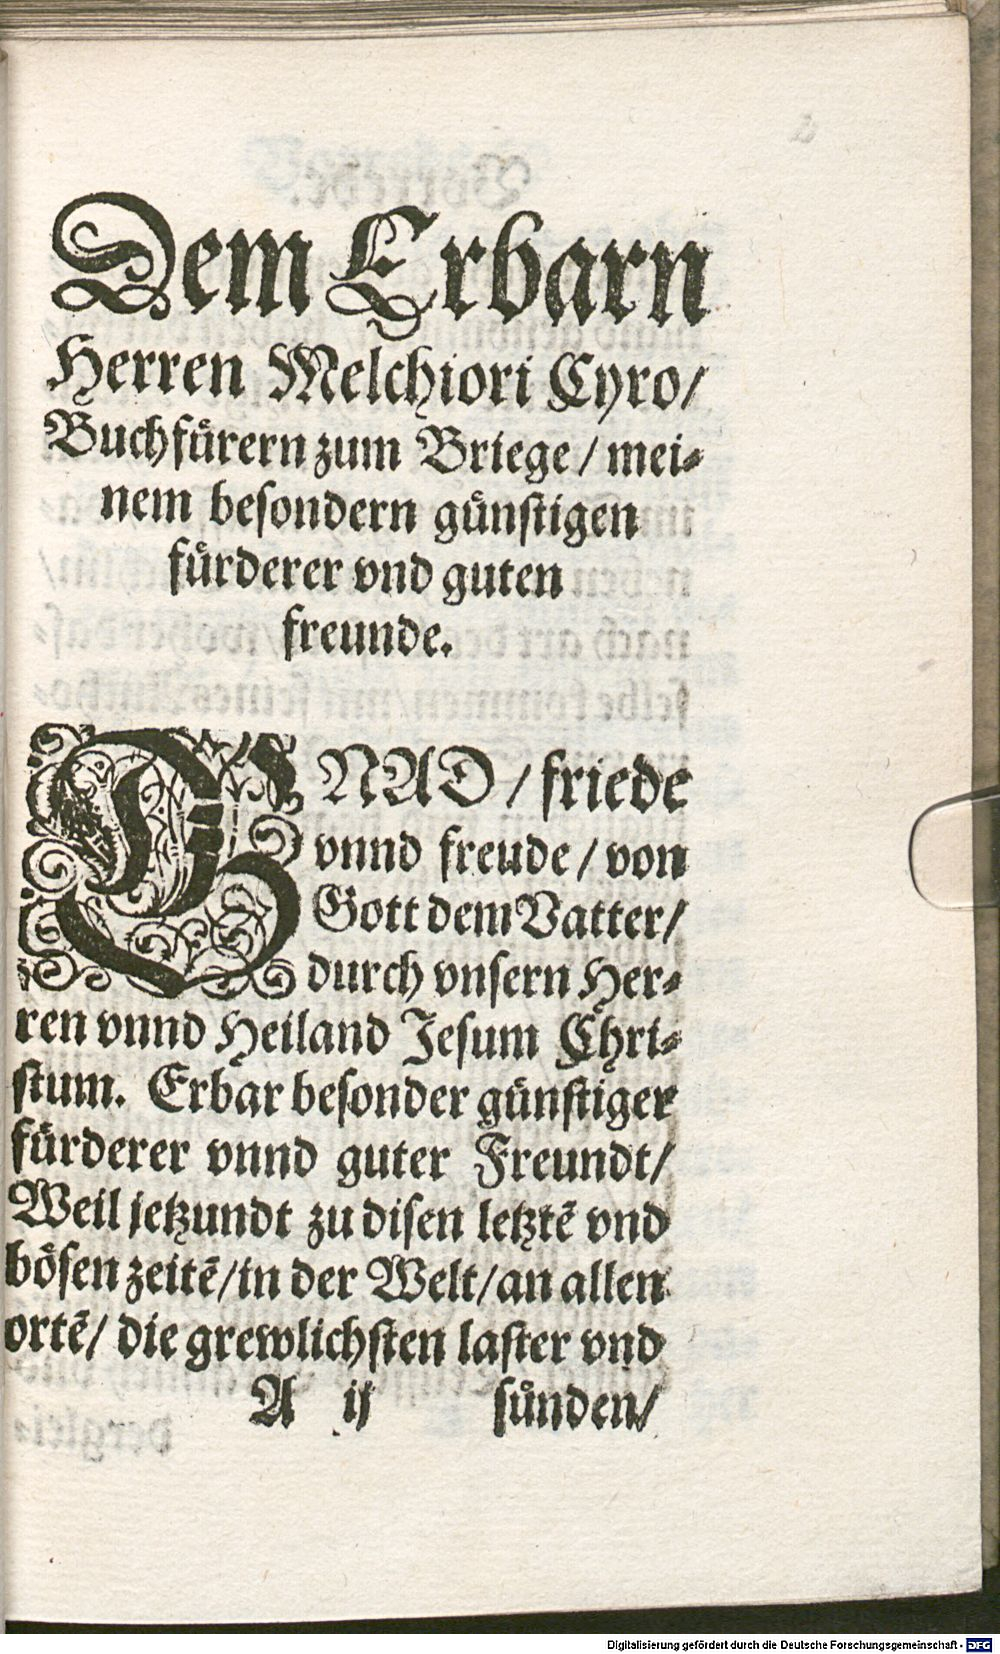 Dem Erbarn
Herren Melchiori Cyro/
Buchfuͤrern zum Briege/ mei⸗
nem besondern guͤnstigen
fuͤrderer vnd guten
freunde.
GNAD/ friede
vnnd freude/ von
Gott dem Vatter/
durch vnsern Her⸗
ren vnnd Heiland Jesum Chri⸗
stum. Erbar besonder guͤnstiger
fuͤrderer vnnd guter Freundt/
Weil jetzundt zu disen letztẽ vnd
boͤsen zeitẽ/ in der Welt/ an allen
ortẽ/ die grewlichsten laster vnd
A ij suͤnden/
Digitalisierung gefördert durch die Deutsche Forschungsgemeinschaft - DFG